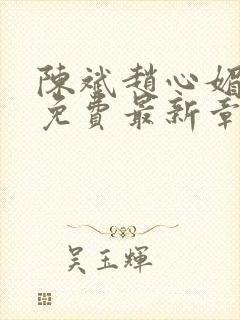 陳斌趙心媚
免費最新章
吳玉輝